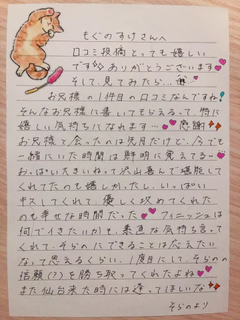 もぐのすけさんへ
口コミ投稿とっても嬉しい
ですありがとうございます
そして、見てみたら…
お兄様の1件目の口コミなんですね!
そんなお兄様に書いてもらえるって、特に
嬉しい気持ちになれますー感謝
お兄様と会ったのは先月だけど、今でも
一緒にいた時間は鮮明に覚えてるー
おっぱい大きいねって沢山喜んで堪能して
くれてたのも嬉しかったし、いっぱい
キスしてくれて、優しく攻めてくれた
のも幸せな時間だった フィニッシュは
何でイきたいかも、素直な気持ち言って
くれて、そらのにできることは応えたい
なって思えるくらい、1度目にして、そらのの
信頼(?)を勝ち取ってくれたよね
また仙台来た時には逢ってほしいな
そらのより